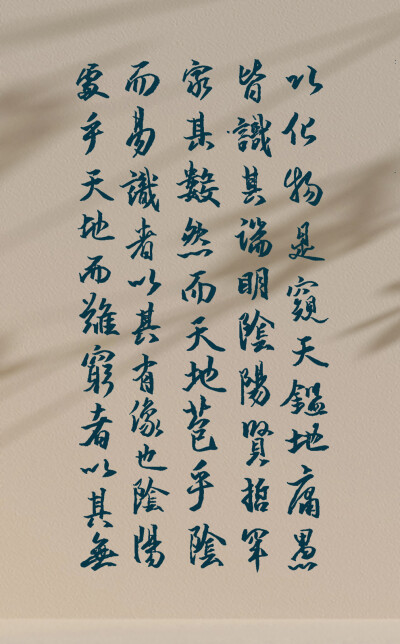 以化物是窺天鑑地庸愚
皆識其端明陰陽賢哲罕
窮其數然而天地苞乎陰
而易識者以其有像也陰陽
處乎天地而難窮者以其無